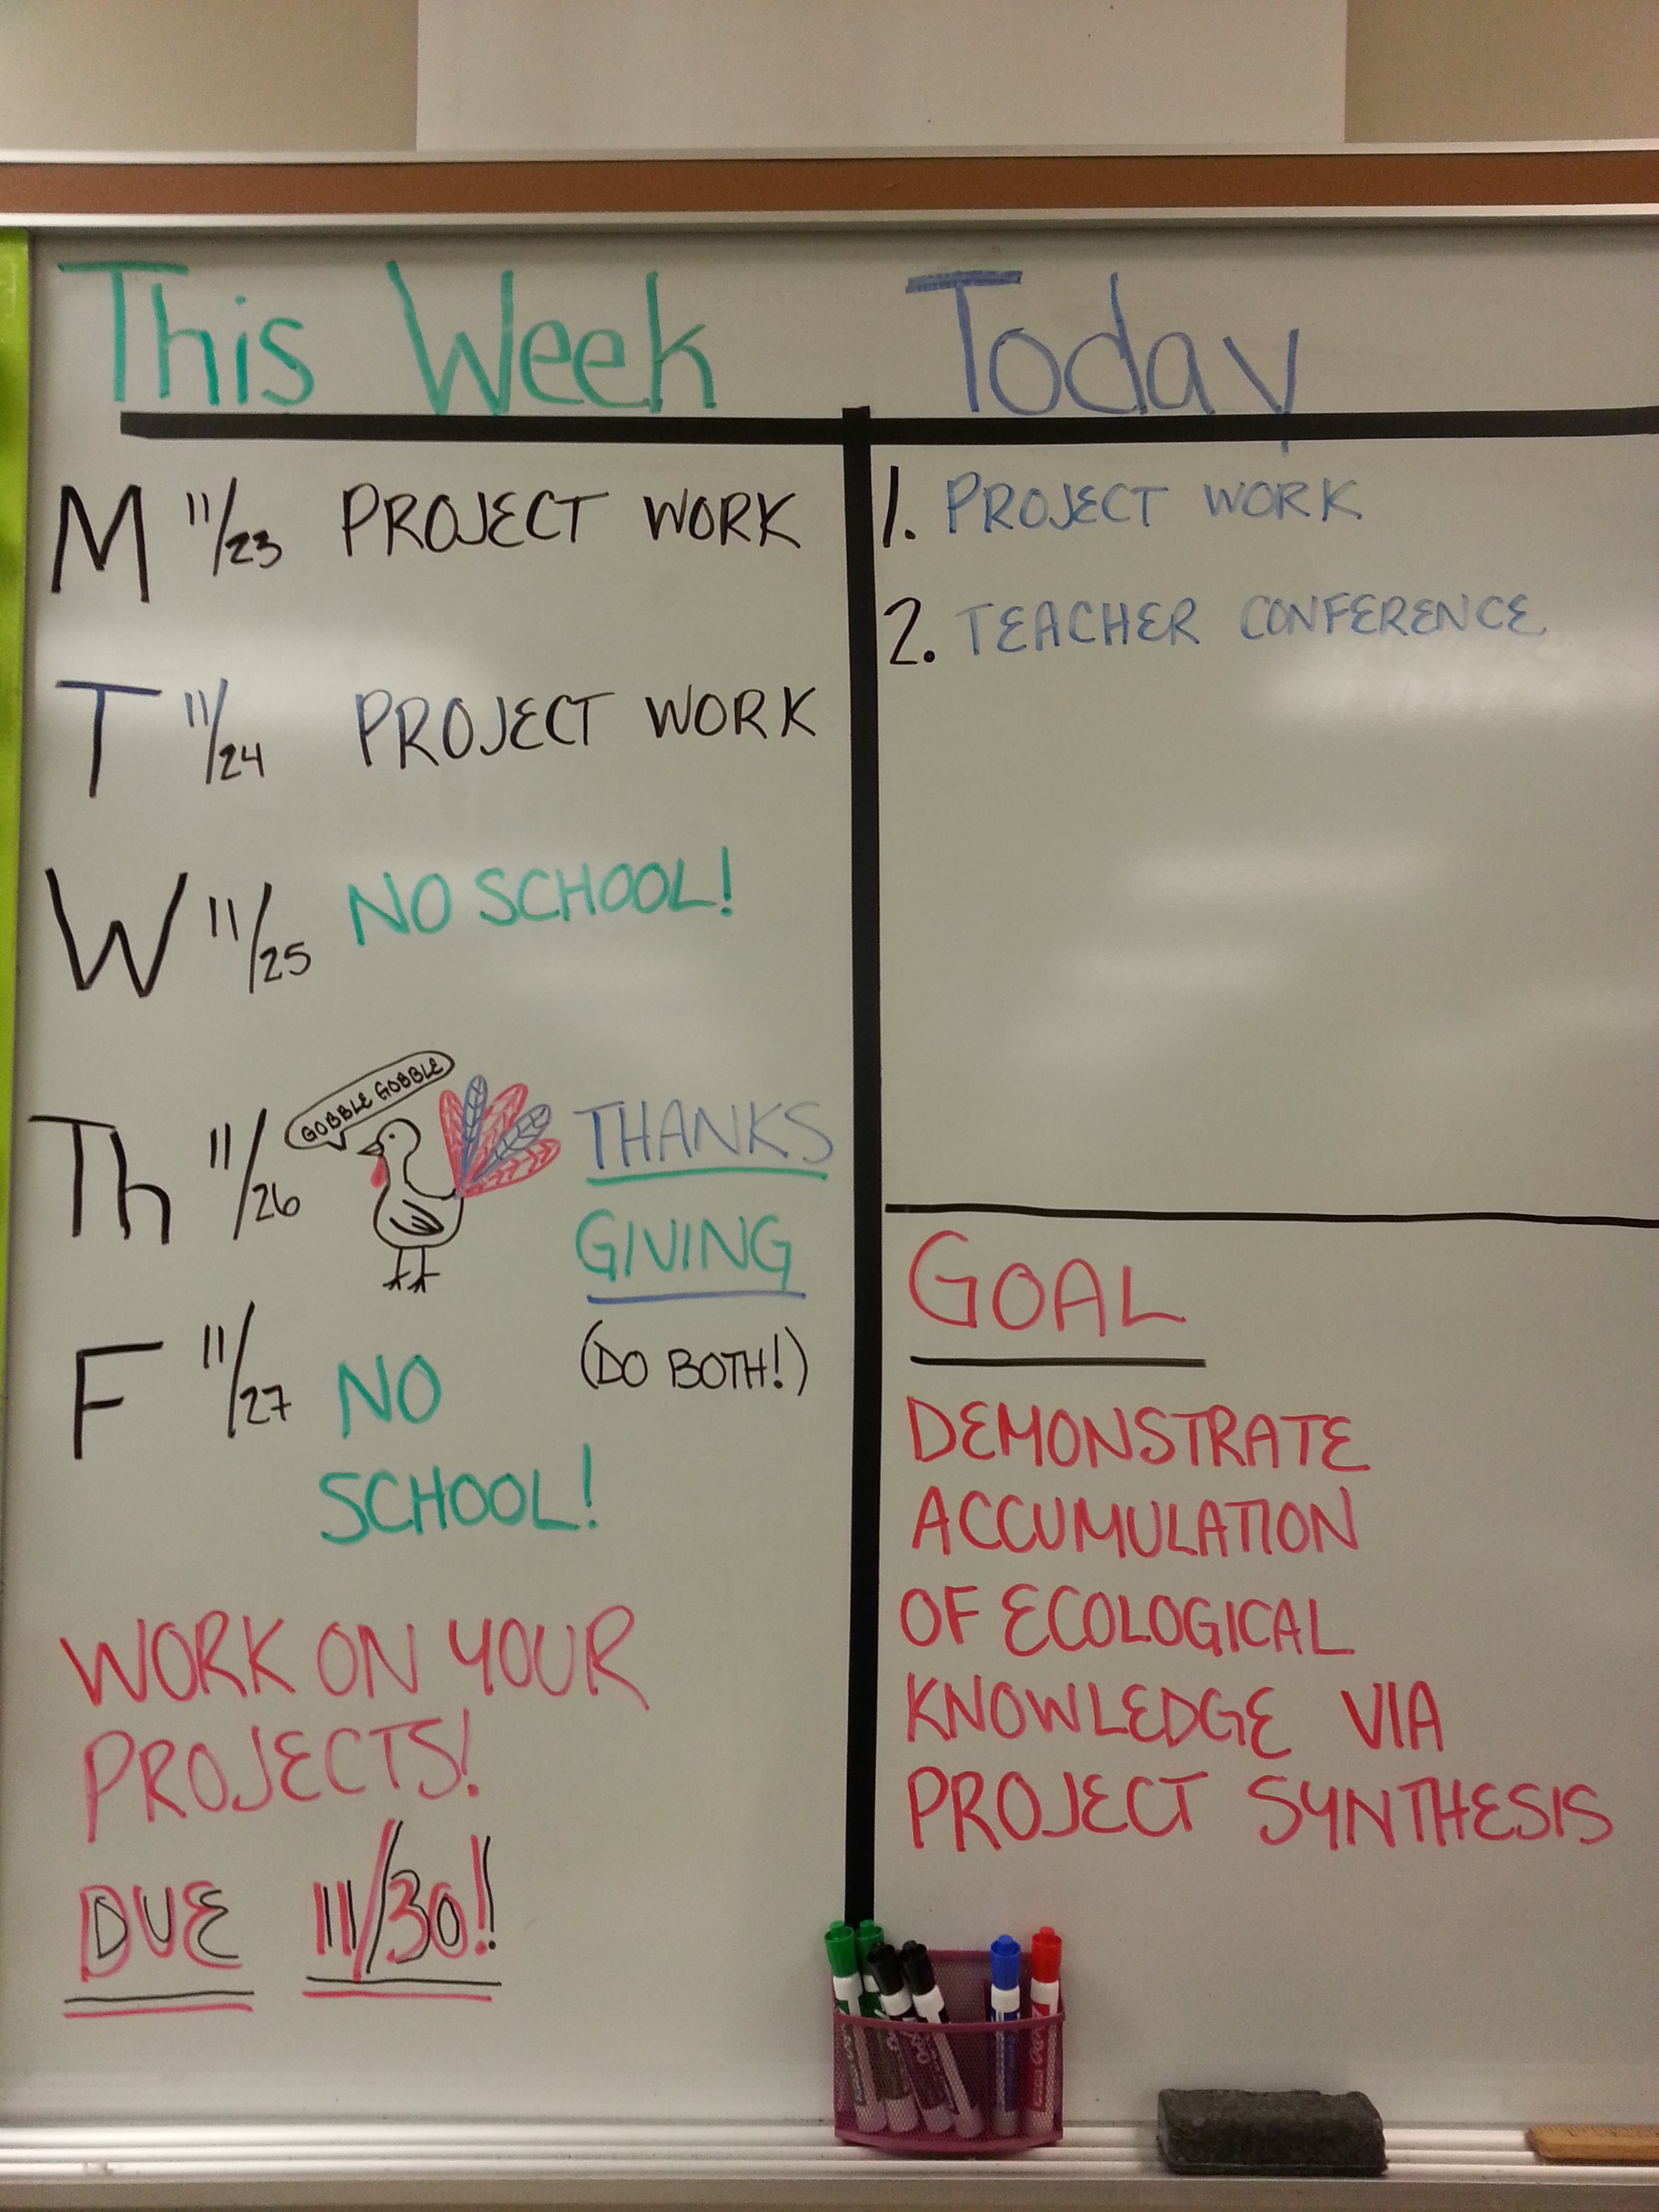 This Week
M 11/23 PROJECT WORK
T 11/24 PROJECT WORK
W 11/25 NO SCHOOL!
Th 11/26
GOBBLE GOBBLE
THANKS
GIVING
(DO BOTH!)
F 11/27 NO
SCHOOL!
WORK ON YOUR
PROJECTS!
DUE 11/30!!
Today
1. PROJECT WORK
2. TEACHER CONFERENCE
GOAL
DEMONSTRATE
ACCUMULATION
OF ECOLOGICAL
KNOWLEDGE VIA
PROJECT SYNTHESIS